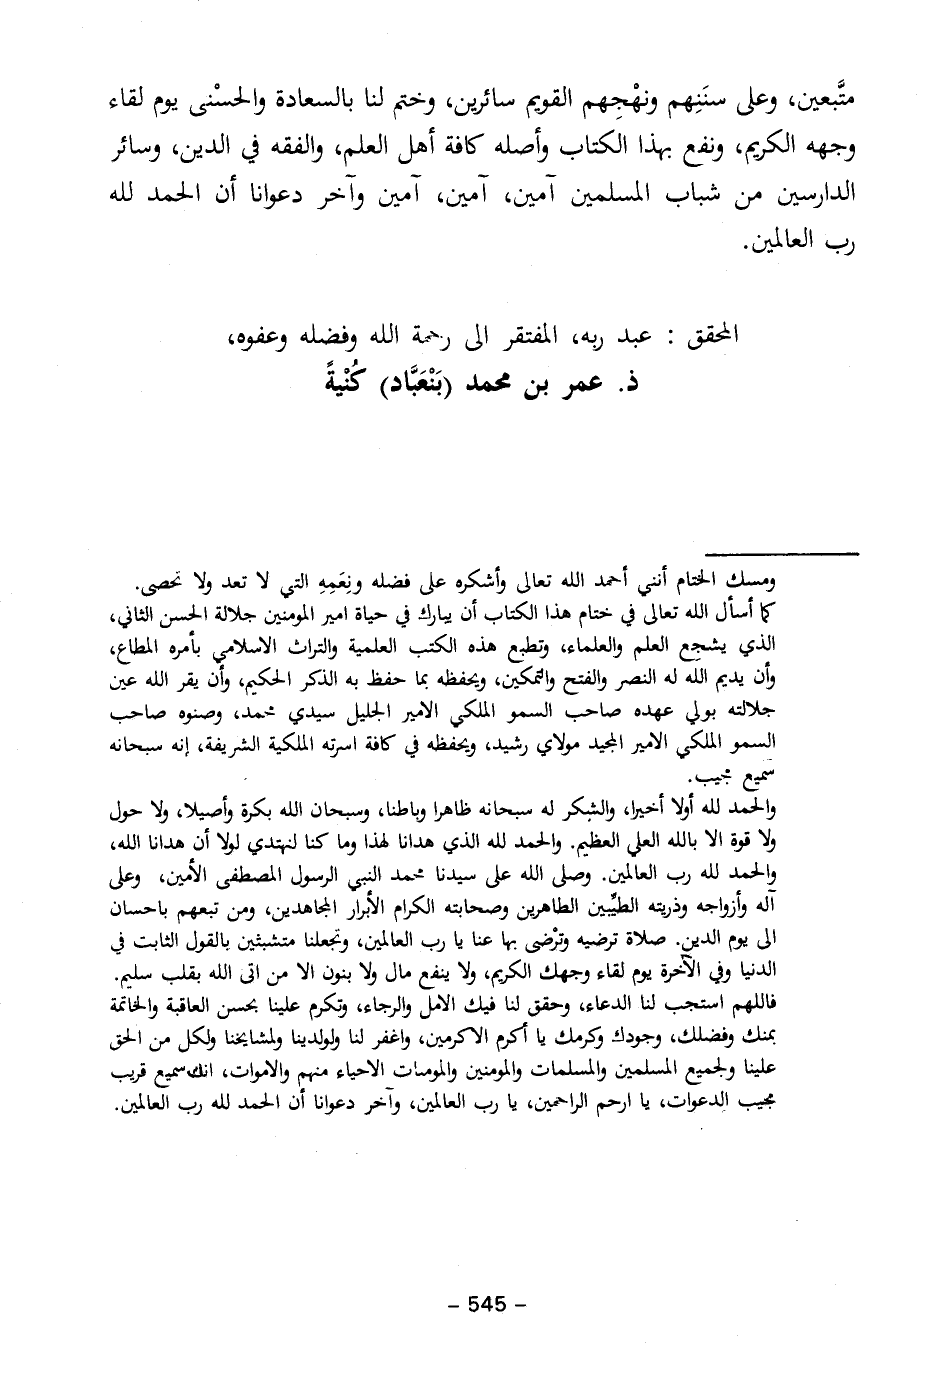 متَّبعين، وعلى سنَنِهم ونهْجِهم القويم سائرين، وختم لنا بالسعادة والحسْنى يوم لقاء
وجهه الكريم، ونفع بهذا الكتاب وأصله كافة أهل العلم، والفقه في الدين، وسائر
الدارسين من شباب المسلمين آمين، آمين، آمين وآخر دعوانا أن الحمد لله
رب العالمين.
المحقق : عبد ربه، المفتقر الى رحمة الله وفضله وعفوه،
ذ. عمر بن محمد (بَنْعَبَّاد) كُنْيةً
ومسك الختام أنني أحمد الله تعالى وأشكره على فضله ونِعَمِهِ التي لا تعد ولا تحصى.
كما أسأل الله تعالى في ختام هذا الكتاب أن يبارك في حياة امير المومنين جلالة الحسن الثاني،
الذي يشجع العلم والعلماء، وتطبع هذه الكتب العلمية والتراث الاسلامي بأمره المطاع،
وأن يديم الله له النصر والفتح والتمكين، ويحفظه بما حفظ به الذكر الحكيم، وأن يقر الله عين
جلالته بولي عهده صاحب السمو الملكي الامير الجليل سيدي محمد، وصنوه صاحب
السمو الملكي الامير المجيد مولاي رشيد، ويحفظه في كافة اسرته الملكية الشريفة، إنه سبحانه
سميع مجيب.
والحمد لله أولا أخيرا، والشكر له سبحانه ظاهرا وباطنا، وسبحان الله بكرة وأصيلا، ولا حول
ولا قوة الا بالله العلي العظيم. والحمد لله الذي هدانا لهذا وما كنا لنهتدي لولا أن هدانا الله،
والحمد لله رب العالمين. وصلى الله على سيدنا محمد النبي الرسول المصطفى الأمين، وعلى
آله وأزواجه وذريته الطيِّبين الطاهرين وصحابته الكرام الأبرار المجاهدين، ومن تبعهم باحسان
الى يوم الدين. صلاة ترضيه وترْضى بها عنا يا رب العالمين، وتجعلنا متشبثين بالقول الثابت في
الدنيا وفي الآخرة يوم لقاء وجهك الكريم، ولا ينفع مال ولا بنون الا من اتى الله بقلب سليم.
فاللهم استجب لنا الدعاء، وحقق لنا فيك الامل والرجاء، وتكرم علينا بحسن العاقبة والخاتمة
بمنك وفضلك، وجودك وكرمك يا أكرم الاكرمين، واغفر لنا ولولدينا ولمشايخنا ولكل من الحق
علينا ولجميع المسلمين والمسلمات والمومنين والمومنات الاحياء منهم والاموات، انك سميع قريب
مجيب الدعوات، يا ارحم الراحمين، يا رب العالمين، وآخر دعوانا أن الحمد لله رب العالمين.
- 545 -